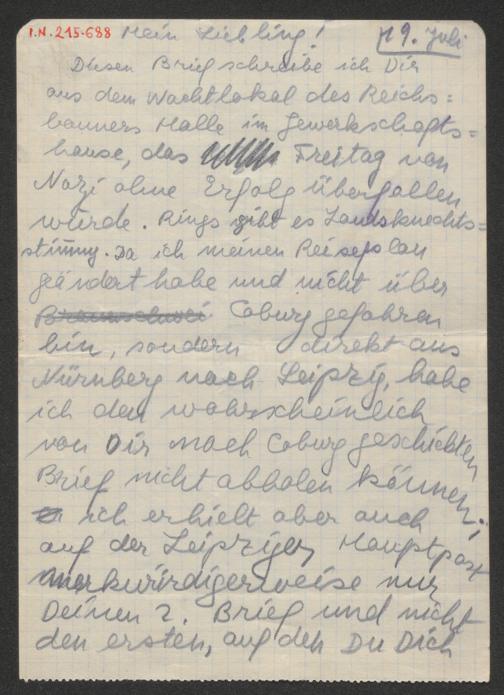 I.N. 215-688 Mein Liebling! 19. Juli
Diesen Brief schreibe ich Dir
aus dem Wachtlokal des Reichs=
banners Halle im Gewerkschafts=
hause, das Freitag von
Nazi ohne Erfolg überfallen
wurde. Rings gibt es Landsknechts=
stimmg. Da ich meinen Reiseplan
geändert habe und nicht über
Braunschwei Coburg gefahren
bin, sondern direkt aus
Nürnberg nach Leipzig, habe
ich den wahrscheinlich
von Dir nach Coburg geschickten
Brief nicht abholen können;
ich erhielt aber auch
auf der Leipziger Hauptpost
merkwürdigerweise nur
Deinen 2. Brief und nicht
den ersten, auf den Du Dich